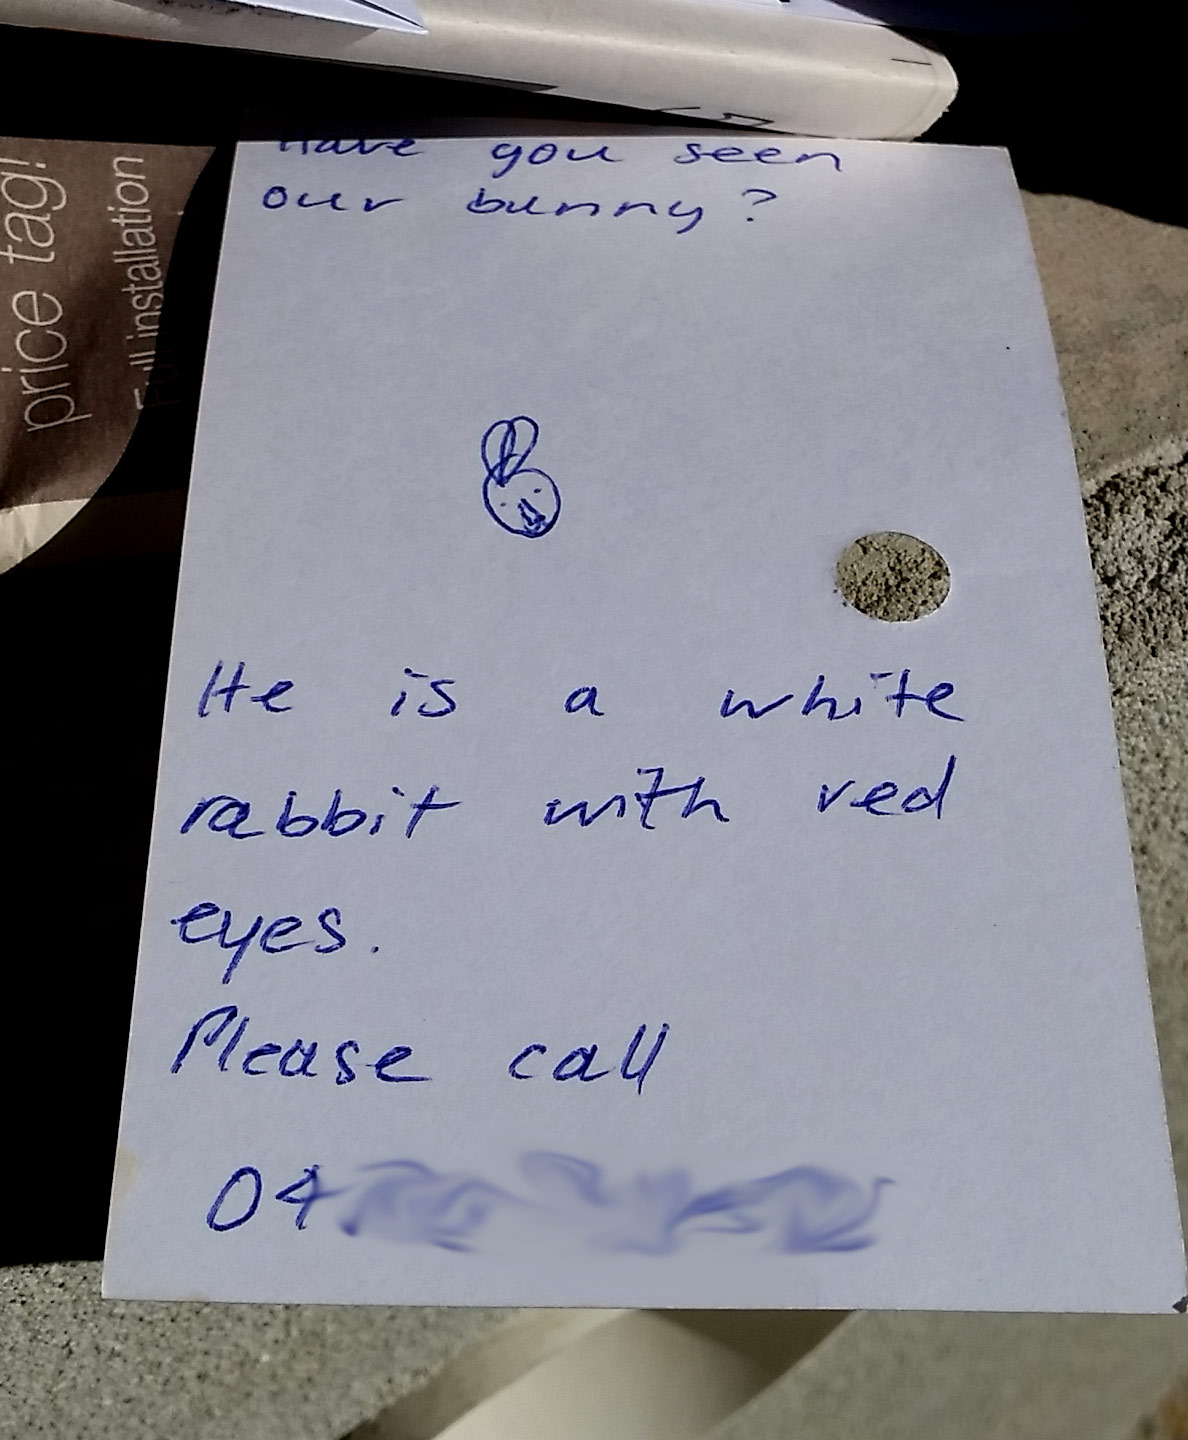 price tag!
Full installation
Have you seen
our bunny?
He is a white
rabbit with red
eyes.
Please call
04